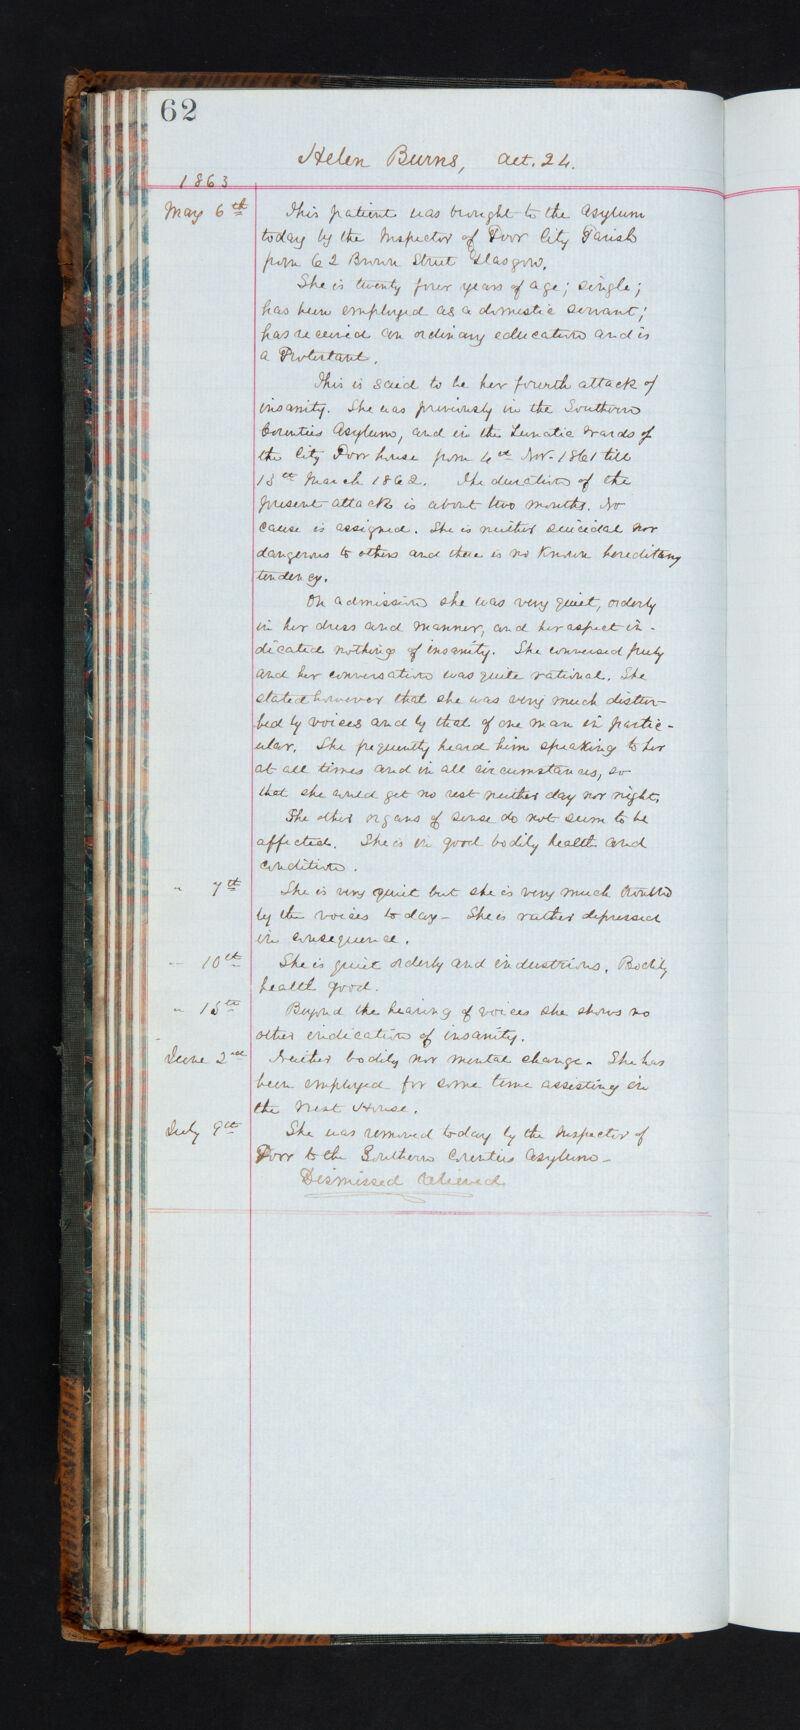 62
Helen Burns, aet. 24.
1863
May 6th This patient was brought to the Asylum
today by the Inspector of Poor City Parish
from 62 Brown Street Glasgow.
She is twenty four years of age; single;
has been employed as a domestic servant;
has received an ordinary education and is
a Protestant.
This is said to be her fourth attack of
insanity. She was previously in the Southern
Counties Asylum, and in the Lunatic Wards of
the City Poor house from 4th Nov. 1861 till
13th March 1862. The duration of the
present attack is about two months. No
cause is assigned. She is neither suicidal nor
dangerous to others and there is no known hereditary
tendency.
On admission she was very quiet, orderly
in her dress and manner, and her aspect in-
dicated nothing of insanity. She conversed freely
and her conversation was quite rational. She
stated however that she was very much distur-
bed by voices and by that of one man in partic-
ular. She frequently heard him speaking to her
at all times and in all circumstances, so
that she could get no rest neither day nor night.
The other organs of sense do not seem to be
affected. She is in good bodily health and
condition.
" 7th She is very quiet but she is very much troubled
by the voices to day - She is rather depressed
in consequence.
" 10th She is quiet orderly and industrious. Bodily
health good.
" 15th Beyond the hearing of voices she shows no
other indication of insanity.
June 2nd Neither bodily nor mental change. She has
been employed for some time assisting in
the West House.
July 9th She was removed today by the Inspector of
Poor to the Southern Counties Asylum -
Dismissed Relieved